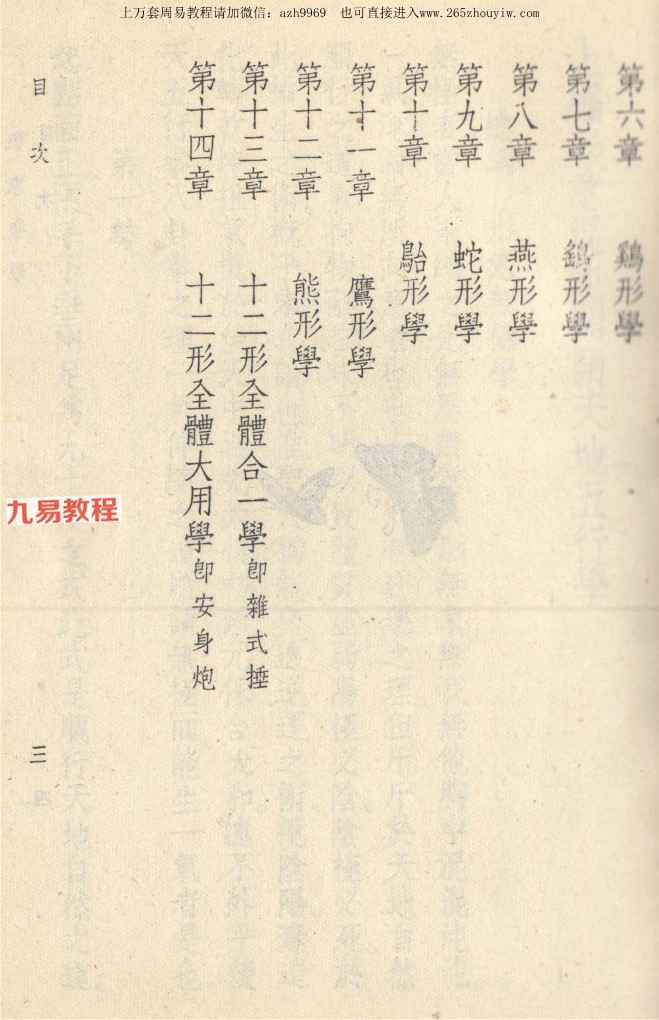 上万套周易教程请加微信：azh9969 也可直接进入www.265zhouyiw.com
第六章 鷄形學
第七章 鷂形學
第八章 燕形學
第九章 蛇形學
第十章 鮐形學
第十一章 鷹形學
第十二章 熊形學
第十三章 十二形全體合一學卽雜式捶
第十四章 十二形全體大用學卽安身炮
目次
三
九易教程